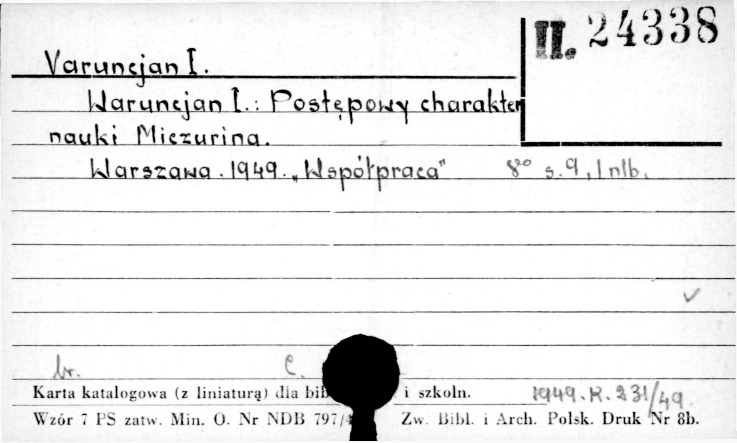 II. 24338
Varuncjan I.
Waruncjan I.: Postępowy charakter
nauki Miczurina.
Warszawa. 1949. „Współpraca” 8° s. 9, 1 nlb.
br. C.
Karta katalogowa (z liniaturą) dla i szkoln. 1949. K. 231/49
Wzór 7 PS zatw. Min. O. Nr NDB 797/ Zw. Bibl. i Arch. Polsk. Druk Nr 8b.